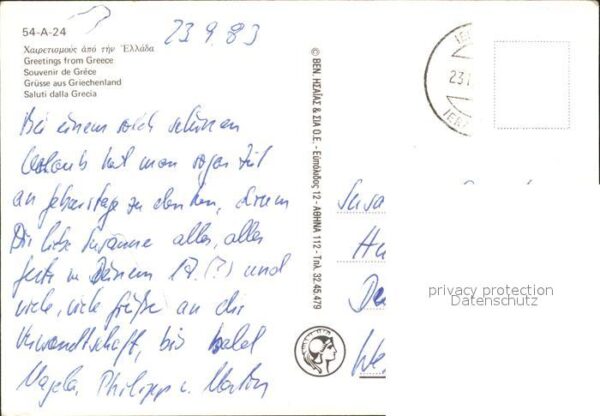 54-A-24
Χαιρετισμούς ἀπό τήν Ἑλλάδα
Greetings from Greece
Souvenir de Grèce
Grüsse aus Griechenland
Saluti dalla Grecia
23.9.83
Bei einem solch schönen
Urlaub hat man sogar Zeit
an Geburtstage zu denken, drum
Dir liebe Susanne alles, alles
Gute in Deinem 17. (?) und
viele, viele Grüße an die
Verwandtschaft, bis bald
Philipp u. Martin
© ΒΕΝ. ΗΣΑΪΑΣ & ΣΙΑ Ο.Ε. - Εὐπόλιδος 12 - ΑΘΗΝΑ 112 - Τηλ. 32.45.479
Susa
Hu
We
privacy protection
Datenschutz